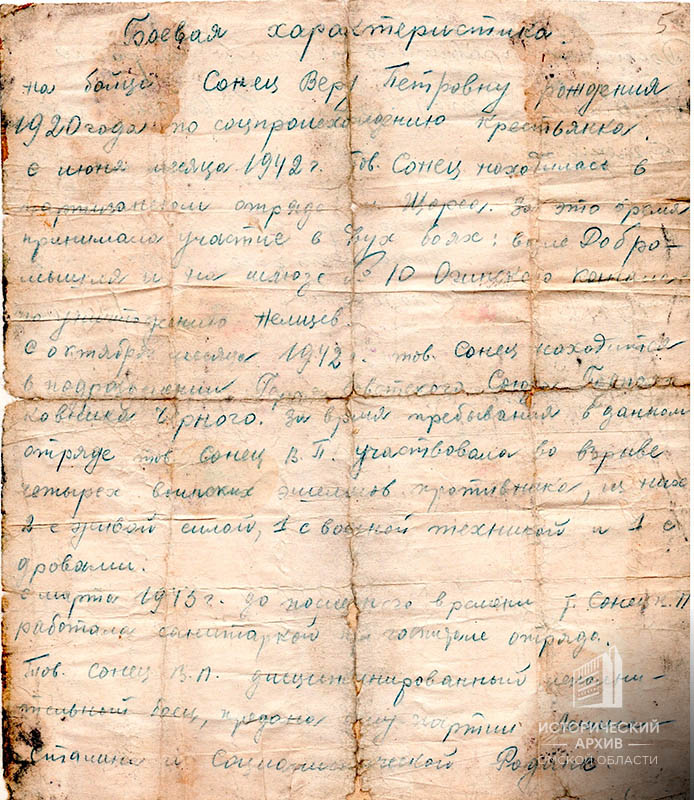 5
Боевая характеристика
на бойца Сонец Веру Петровну рождения
1920 года по соцпроисхождению крестьянка.
С июня месяца 1942 г. тов. Сонец находилась в
партизанском отряде Щорса. За это время
принимала участие в двух боях: в селе Добро-
мышля и на шлюзе № 10 Огинского канала
по уничтожению немцев.
С октября месяца 1942 г. тов. Сонец находится
в подразделении Героя Советского Союза Подпол-
ковника Черного. За время пребывания в данном
отряде тов. Сонец В.П. участвовала во взрыве
четырех воинских эшелонов противника, из них
2 с живой силой, 1 с военной техникой и 1 с
дровами.
С марта 1943 г. до последнего времени т. Сонец
работала санитаркой при госпитале отряда.
Тов. Сонец В.П. дисциплинированный исполни-
тельный боец, предана делу партии Ленина-
Сталина и Социалистической Родине.
ИСТОРИЧЕСКИЙ
АРХИВ
ОМСКОЙ ОБЛАСТИ